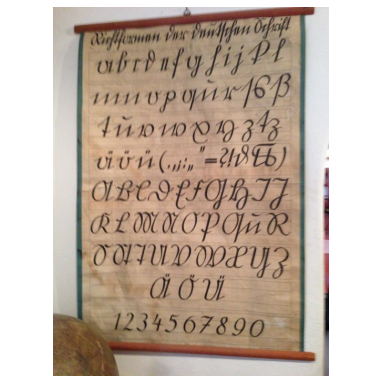 Richtformen der deutschen Schrift
a b c d e f g h i j k l
m n o p q u r s ß
t u v w x y z tz
ä ö ü ( . , ; : „ " = ? ! )
A B C D E F G H I J
K L M N O P Q u R
S St T U V W X Y Z
Ä Ö Ü
1 2 3 4 5 6 7 8 9 0